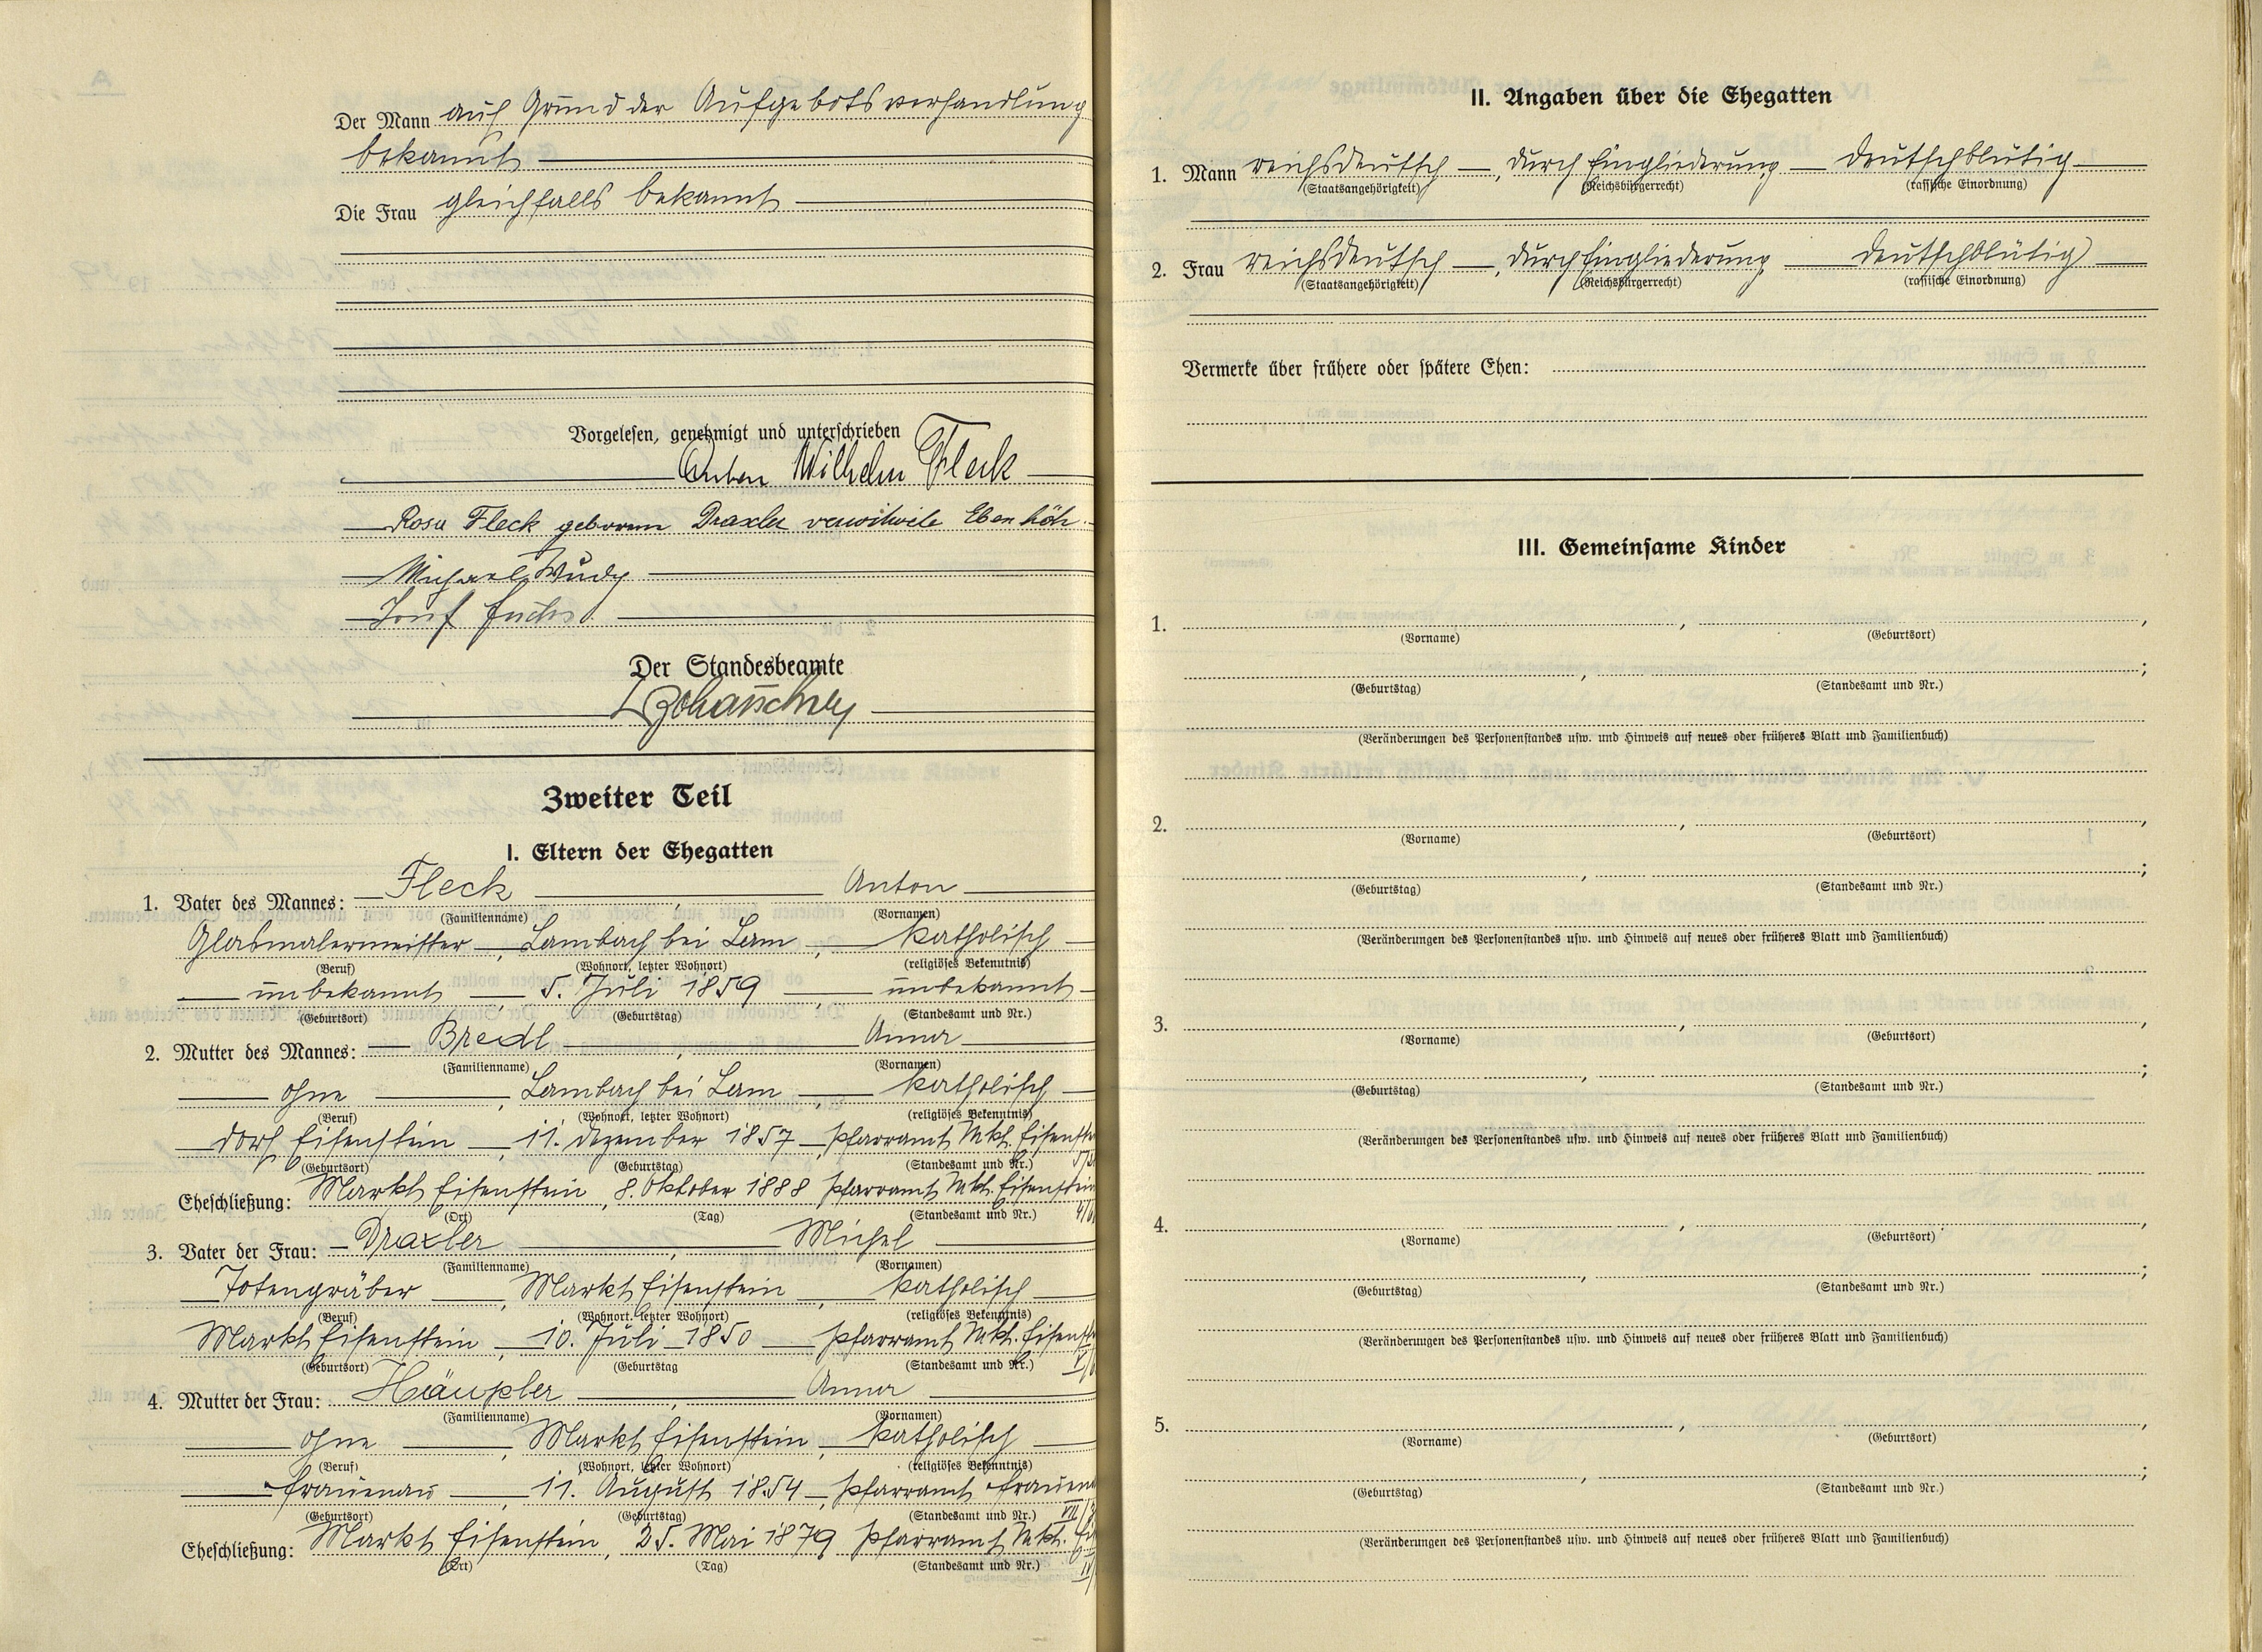 Der Mann auf Grund der Aufgebotsverhandlung
bekannt
Die Frau gleichfalls bekannt
Vorgelesen, genehmigt und unterschrieben
Anton Wilhelm Fleck
Rosa Fleck geborene Draxler verwitwete Ebenhöh
Michael Wudy
Josef Fuchs
Der Standesbeamte
Zweiter Teil
I. Eltern der Ehegatten
1. Vater des Mannes: Fleck, Anton
(Familienname) (Vornamen)
Glasmalermeister, Lambach bei Lam, katholisch
(Beruf) (Wohnort, letzter Wohnort) (religiöses Bekenntnis)
unbekannt, 5. Juli 1859, unbekannt
(Geburtsort) (Geburtstag) (Standesamt und Nr.)
2. Mutter des Mannes: Bredl, Anna
(Familienname) (Vornamen)
ohne, Lambach bei Lam, katholisch
(Beruf) (Wohnort, letzter Wohnort) (religiöses Bekenntnis)
Dorf Eisenstein, 11. Dezember 1857, Pfarramt Mkt. Eisenst
(Geburtsort) (Geburtstag) (Standesamt und Nr.)
Eheschließung: Markt Eisenstein, 8. Oktober 1888 Pfarramt Mkt. Eisenstein
(Ort) (Tag) (Standesamt und Nr.)
3. Vater der Frau: Draxler, Michel
(Familienname) (Vornamen)
Totengräber, Markt Eisenstein, katholisch
(Beruf) (Wohnort, letzter Wohnort) (religiöses Bekenntnis)
Markt Eisenstein, 10. Juli 1850, Pfarramt Mkt. Eisenst
(Geburtsort) (Geburtstag (Standesamt und Nr.)
4. Mutter der Frau: Häupler, Anna
(Familienname) (Vornamen)
ohne, Markt Eisenstein, katholisch
(Beruf) (Wohnort, letzter Wohnort) (religiöses Bekenntnis)
Frauenau, 11. August 1854, Pfarramt Frauen
(Geburtsort) (Geburtstag) (Standesamt und Nr.)
Eheschließung: Markt Eisenstein, 25. Mai 1879 Pfarramt Mkt.
(Ort) (Tag) (Standesamt und Nr.)
II. Angaben über die Ehegatten
1. Mann reichsdeutsch, durch Eingliederung deutschblütig
(Staatsangehörigkeit) (Reichsbürgerrecht) (rassische Einordnung)
2. Frau reichsdeutsch, durch Eingliederung deutschblütig
(Staatsangehörigkeit) (Reichsbürgerrecht) (rassische Einordnung)
Vermerke über frühere oder spätere Ehen:
III. Gemeinsame Kinder
1. , ,
(Vorname) (Geburtsort)
, ;
(Geburtstag) (Standesamt und Nr.)
(Veränderungen des Personenstandes usw. und Hinweis auf neues oder früheres Blatt und Familienbuch)
2. , ,
(Vorname) (Geburtsort)
, ;
(Geburtstag) (Standesamt und Nr.)
(Veränderungen des Personenstandes usw. und Hinweis auf neues oder früheres Blatt und Familienbuch)
3. , ,
(Vorname) (Geburtsort)
, ;
(Geburtstag) (Standesamt und Nr.)
(Veränderungen des Personenstandes usw. und Hinweis auf neues oder früheres Blatt und Familienbuch)
4. , ,
(Vorname) (Geburtsort)
, ;
(Geburtstag) (Standesamt und Nr.)
(Veränderungen des Personenstandes usw. und Hinweis auf neues oder früheres Blatt und Familienbuch)
5. , ,
(Vorname) (Geburtsort)
, ;
(Geburtstag) (Standesamt und Nr.)
(Veränderungen des Personenstandes usw. und Hinweis auf neues oder früheres Blatt und Familienbuch)